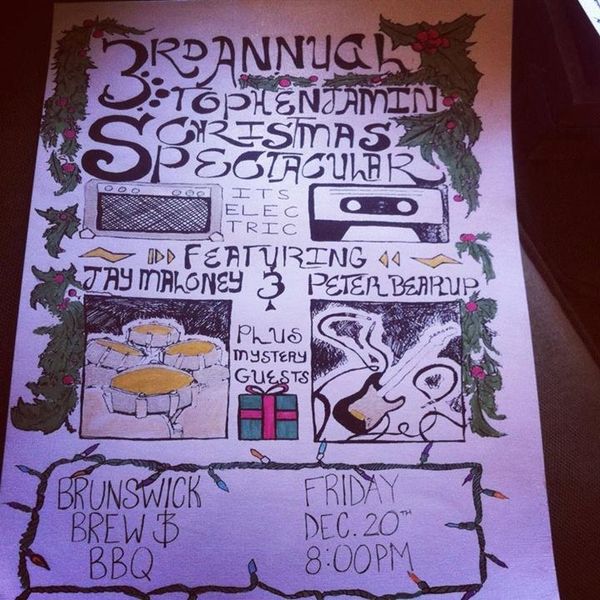 3RD ANNUAL
STOPHENJAMIN
CHRISTMAS
SPECTACULAR
ITS
ELEC
TRIC
FEATURING
JAY MALONEY & PETER BEARUP
PLUS
MYSTERY
GUESTS
BRUNSWICK
BREW &
BBQ
FRIDAY
DEC. 20TH
8:00PM